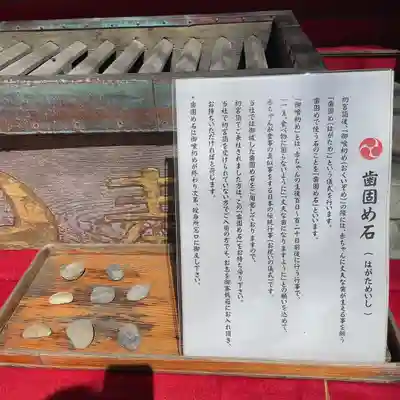 歯固め石
(はがためいし)
初宮詣後、「御喰初め（おくいぞめ）」の際には、赤ちゃんに丈夫な歯が生える事を願う
「歯固め（はがため）」という儀式を行います。
歯固めで使う石のことを「歯固め石」といいます。
「御喰初め」とは、赤ちゃんの生後百日～百二十日前後に行う行事で、
「一生、食べ物に困らないように」「丈夫な歯になりますように」との願いを込めて、
赤ちゃんが食事の真似事をする日本の伝統行事（お祝いの儀式）です。
当社では御祓した歯固め石をご用意しておりますので、
初宮詣でご来社されました方は、この「歯固め石」をお持ち帰り下さい。
当社で初宮詣を受けられていない方でご入用の方でも、お志を御賽銭箱にお入れ頂き、
お持ちいただければと存じます。
*歯固め石は御喰初めが終わり次第、授与所窓口に御返し下さい。